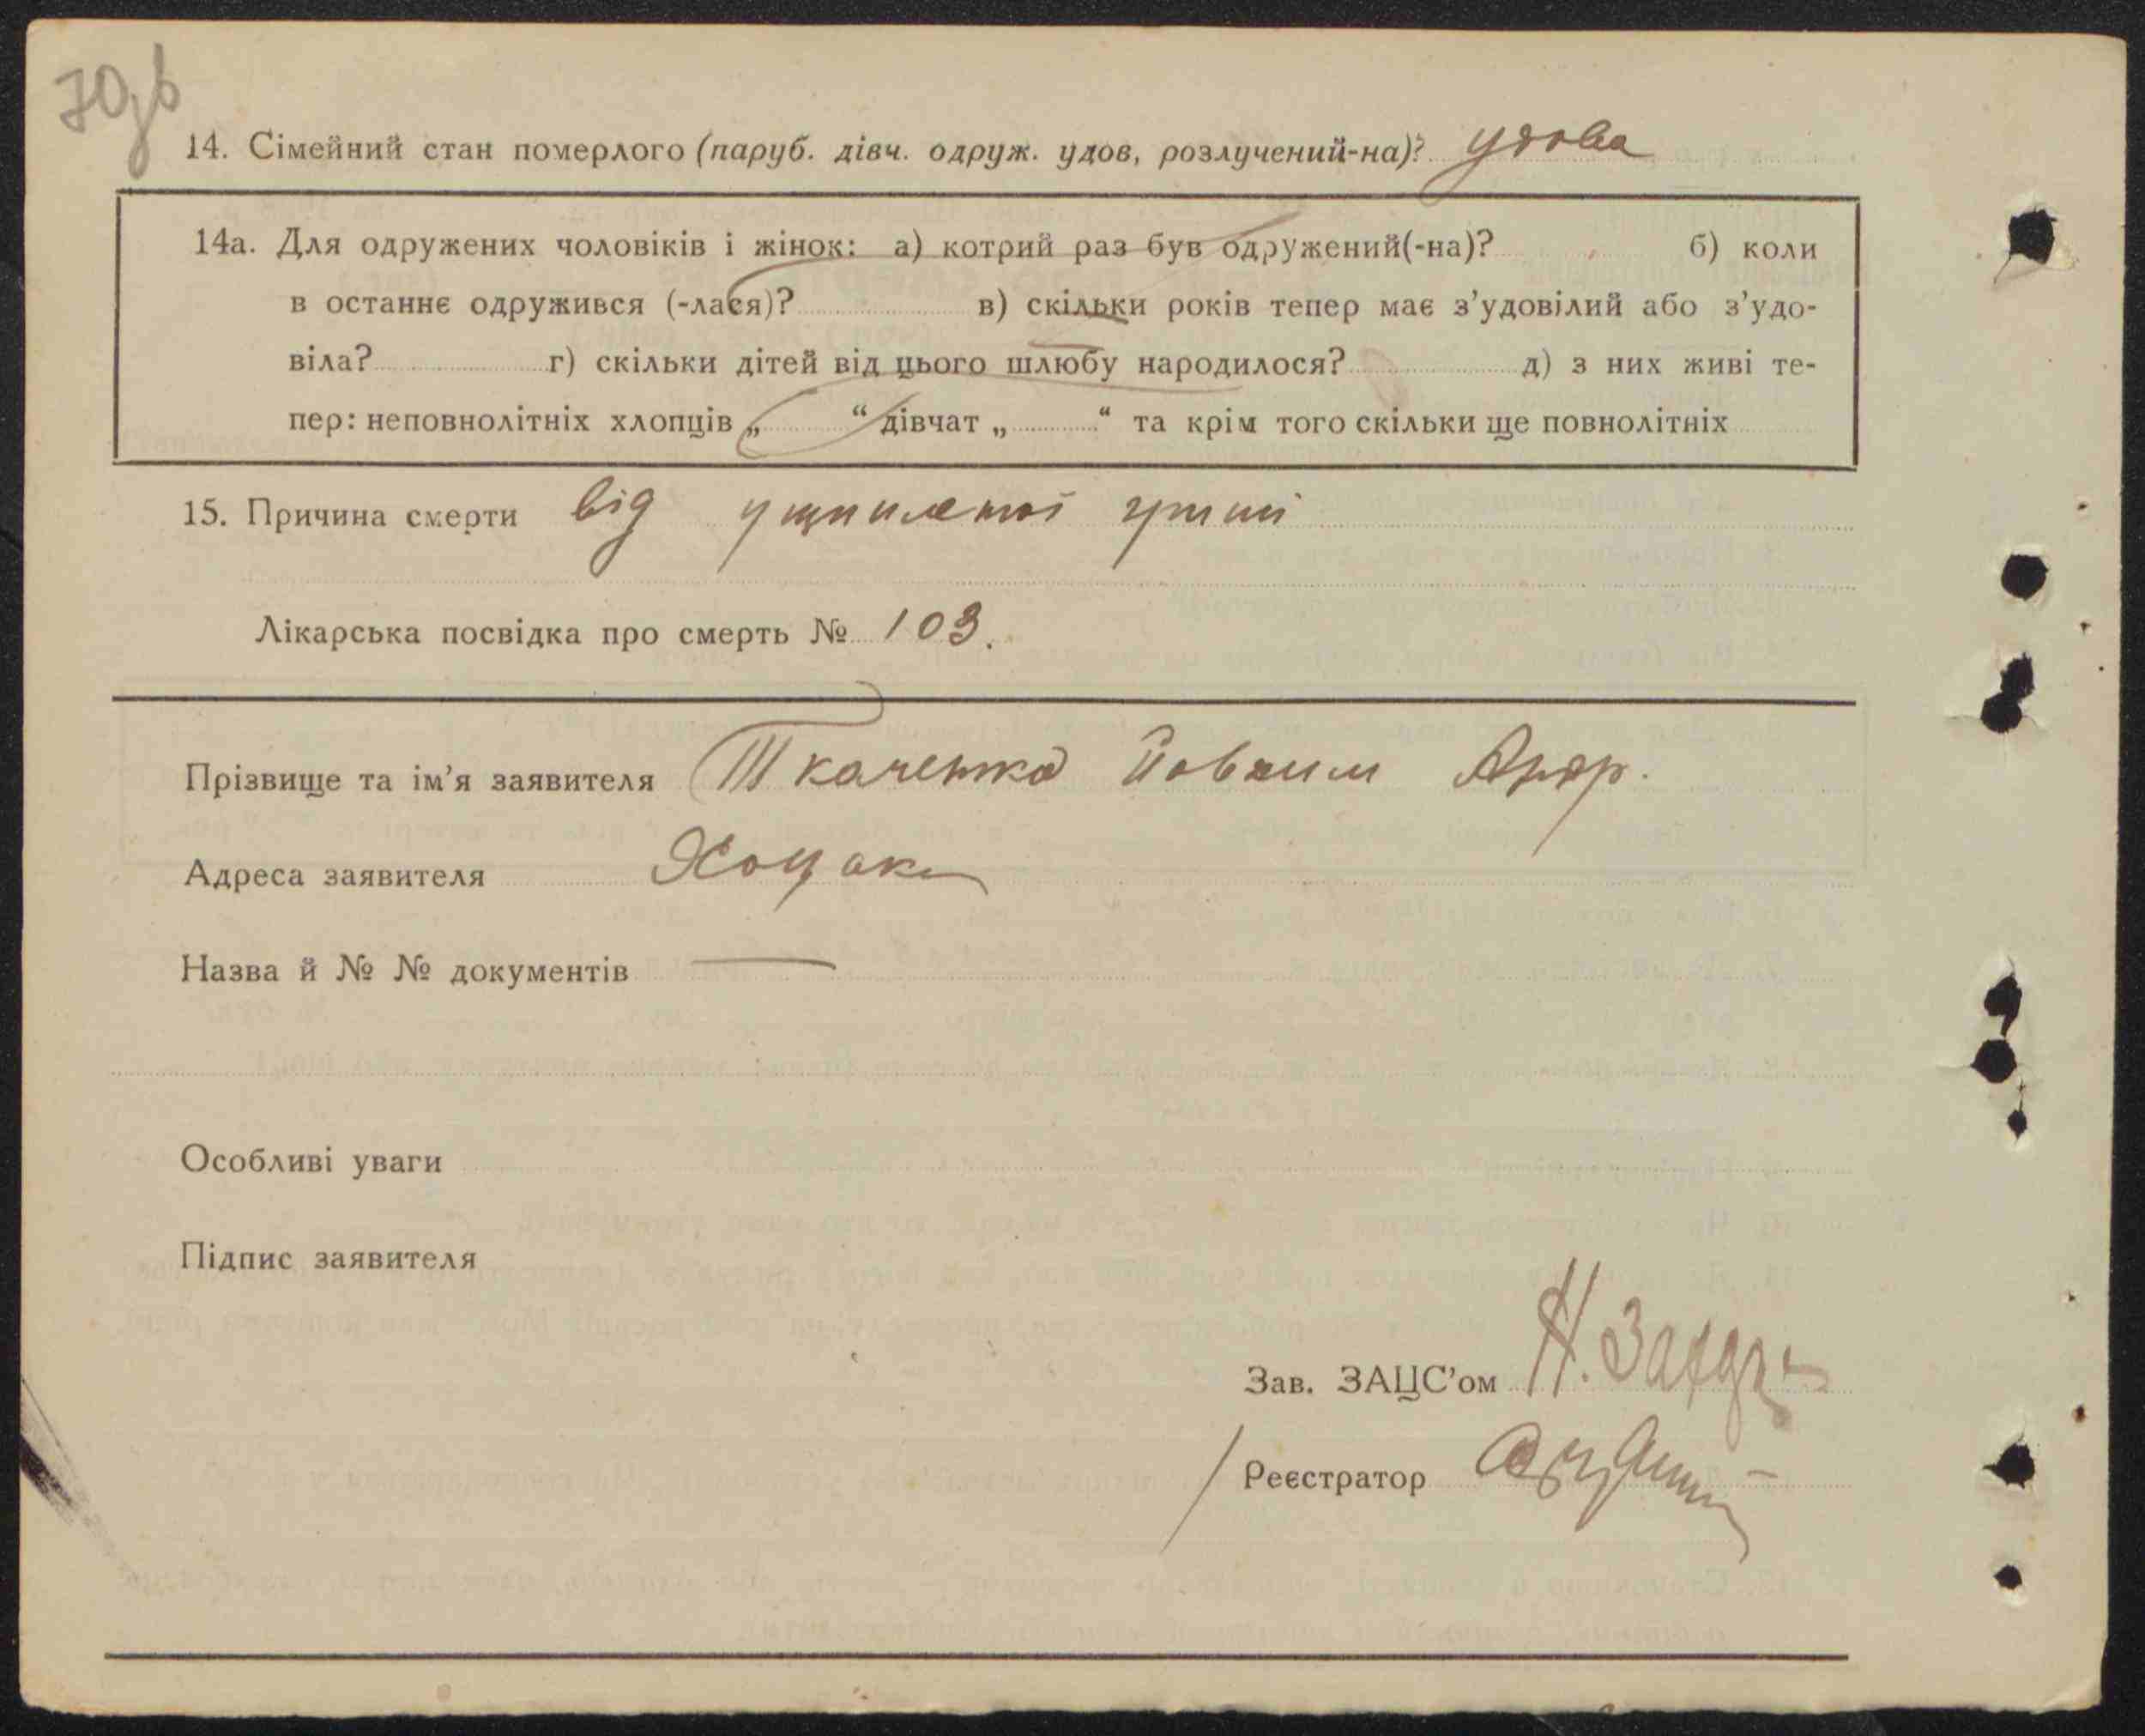 70зв
14. Сімейний стан померлого (паруб. дівч. одруж. удов, розлучений-на)? удова
14а. Для одружених чоловіків і жінок: а) котрий раз був одружений(-на)? б) коли
в останнє одружився (-лася)? в) скільки років тепер має з’удовілий або з’удо-
віла? г) скільки дітей від цього шлюбу народилося? д) з них живі те-
пер: неповнолітніх хлопців „ “ дівчат „ “ та крім того скільки ще повнолітніх
15. Причина смерти від ущемленої грижі
Лікарська посвідка про смерть № 103.
Прізвище та ім’я заявителя Ткаченко Йовхим
Адреса заявителя Хоцьки
Назва й № № документів —
Особливі уваги
Підпис заявителя
Зав. ЗАЦС’ом
Реєстратор